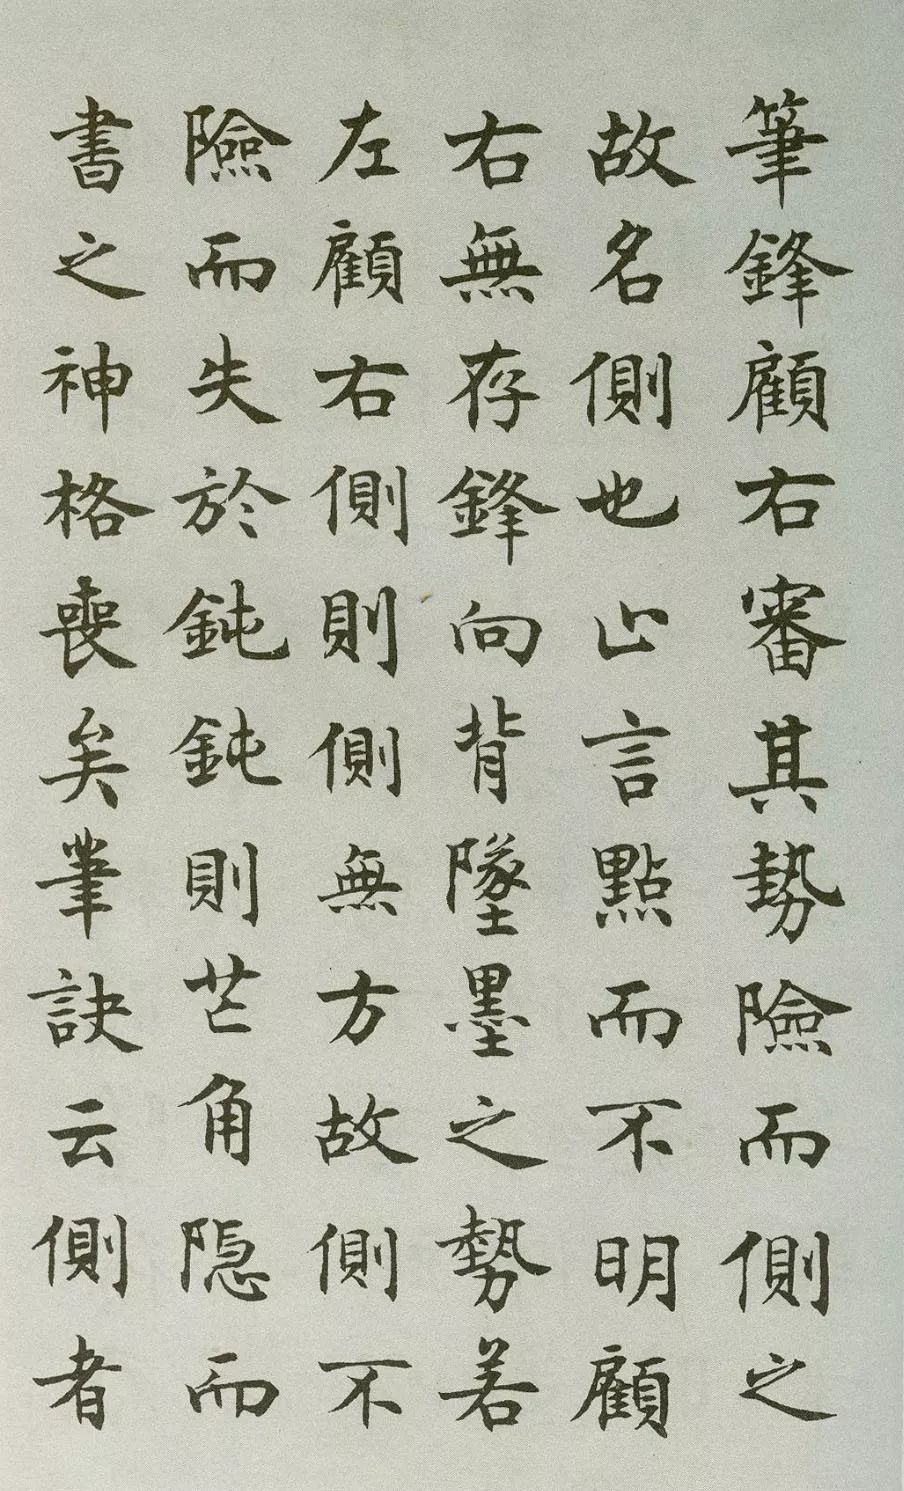 筆鋒顧右審其勢險而側之
故名側也止言點而不明顧
右無存鋒向背墜墨之勢若
左顧右側則側無方故側不
險而失於鈍鈍則芒角隐而
書之神格喪矣筆訣云側者